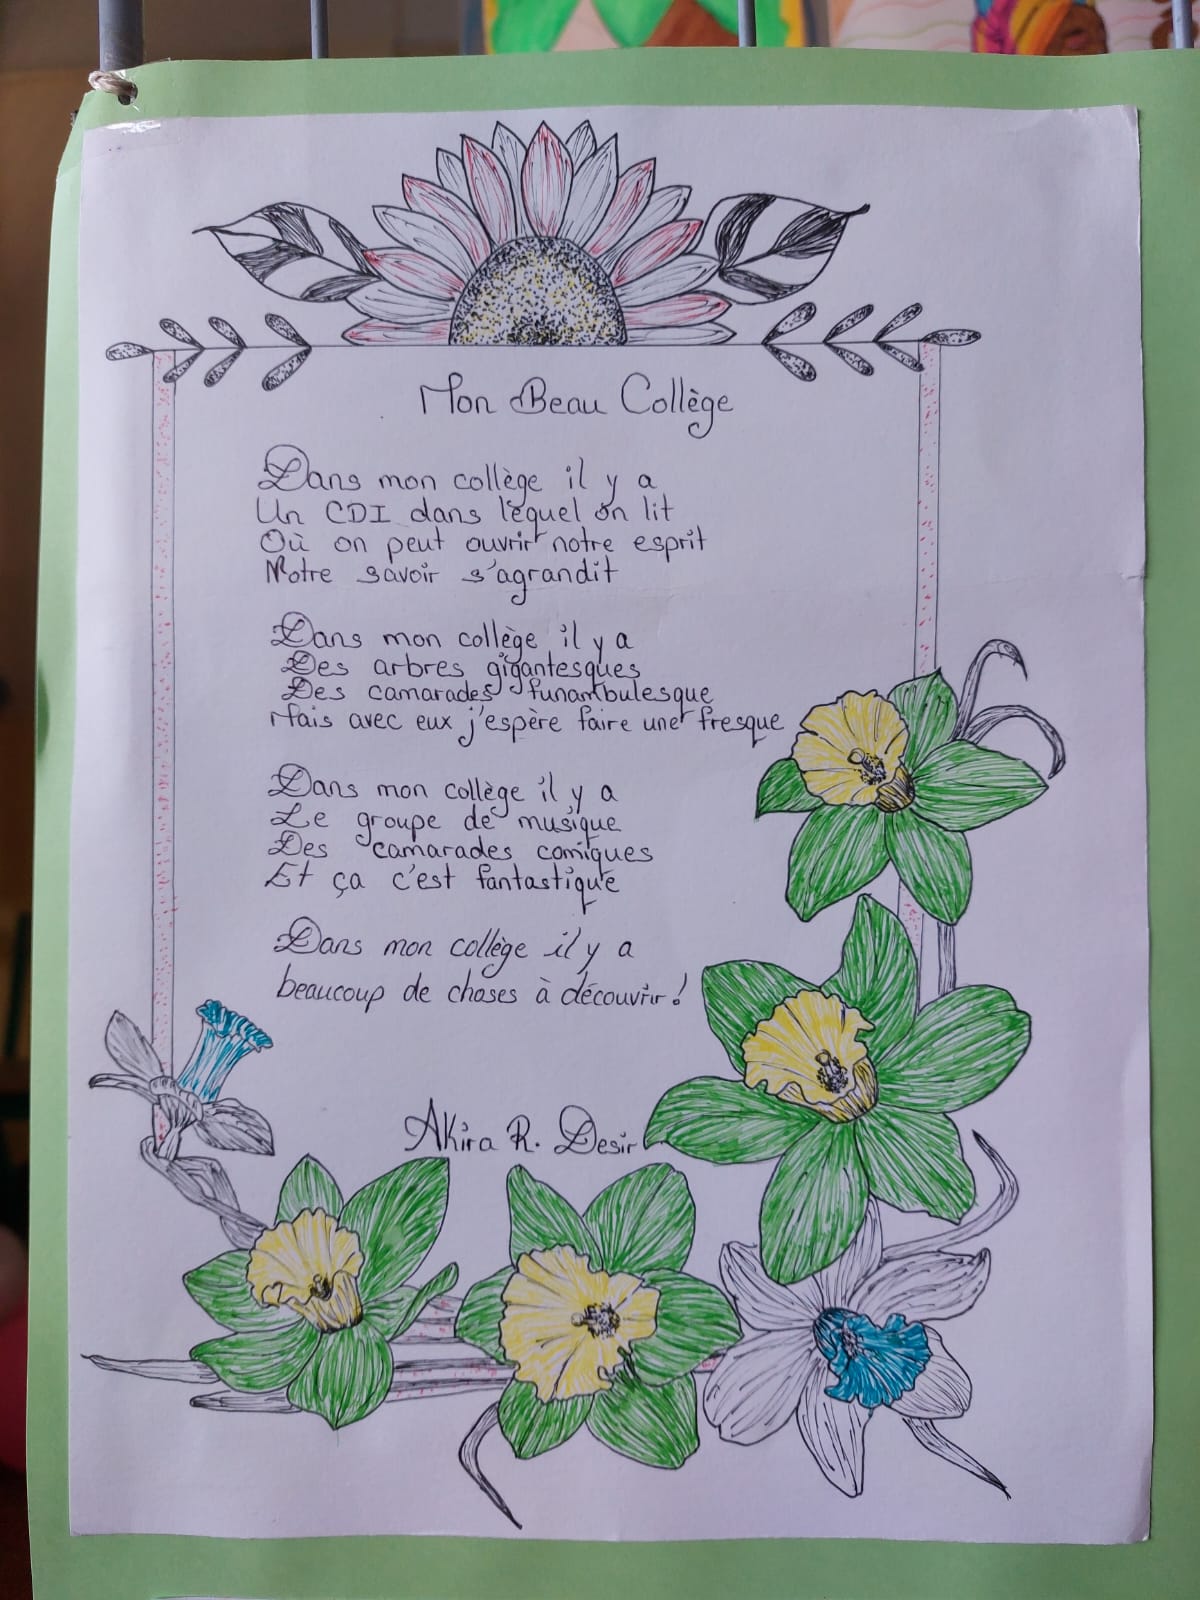 Mon Beau Collège
Dans mon collège il y a
Un CDI dans lequel on lit
Où on peut ouvrir notre esprit
Notre savoir s'agrandit
Dans mon collège il y a
Des arbres gigantesques
Des camarades funambulesque
Mais avec eux j'espère faire une fresque
Dans mon collège il y a
Le groupe de musique
Des camarades comiques
Et ça c'est fantastique
Dans mon collège il y a
beaucoup de choses à découvrir!
Akira R. Desir